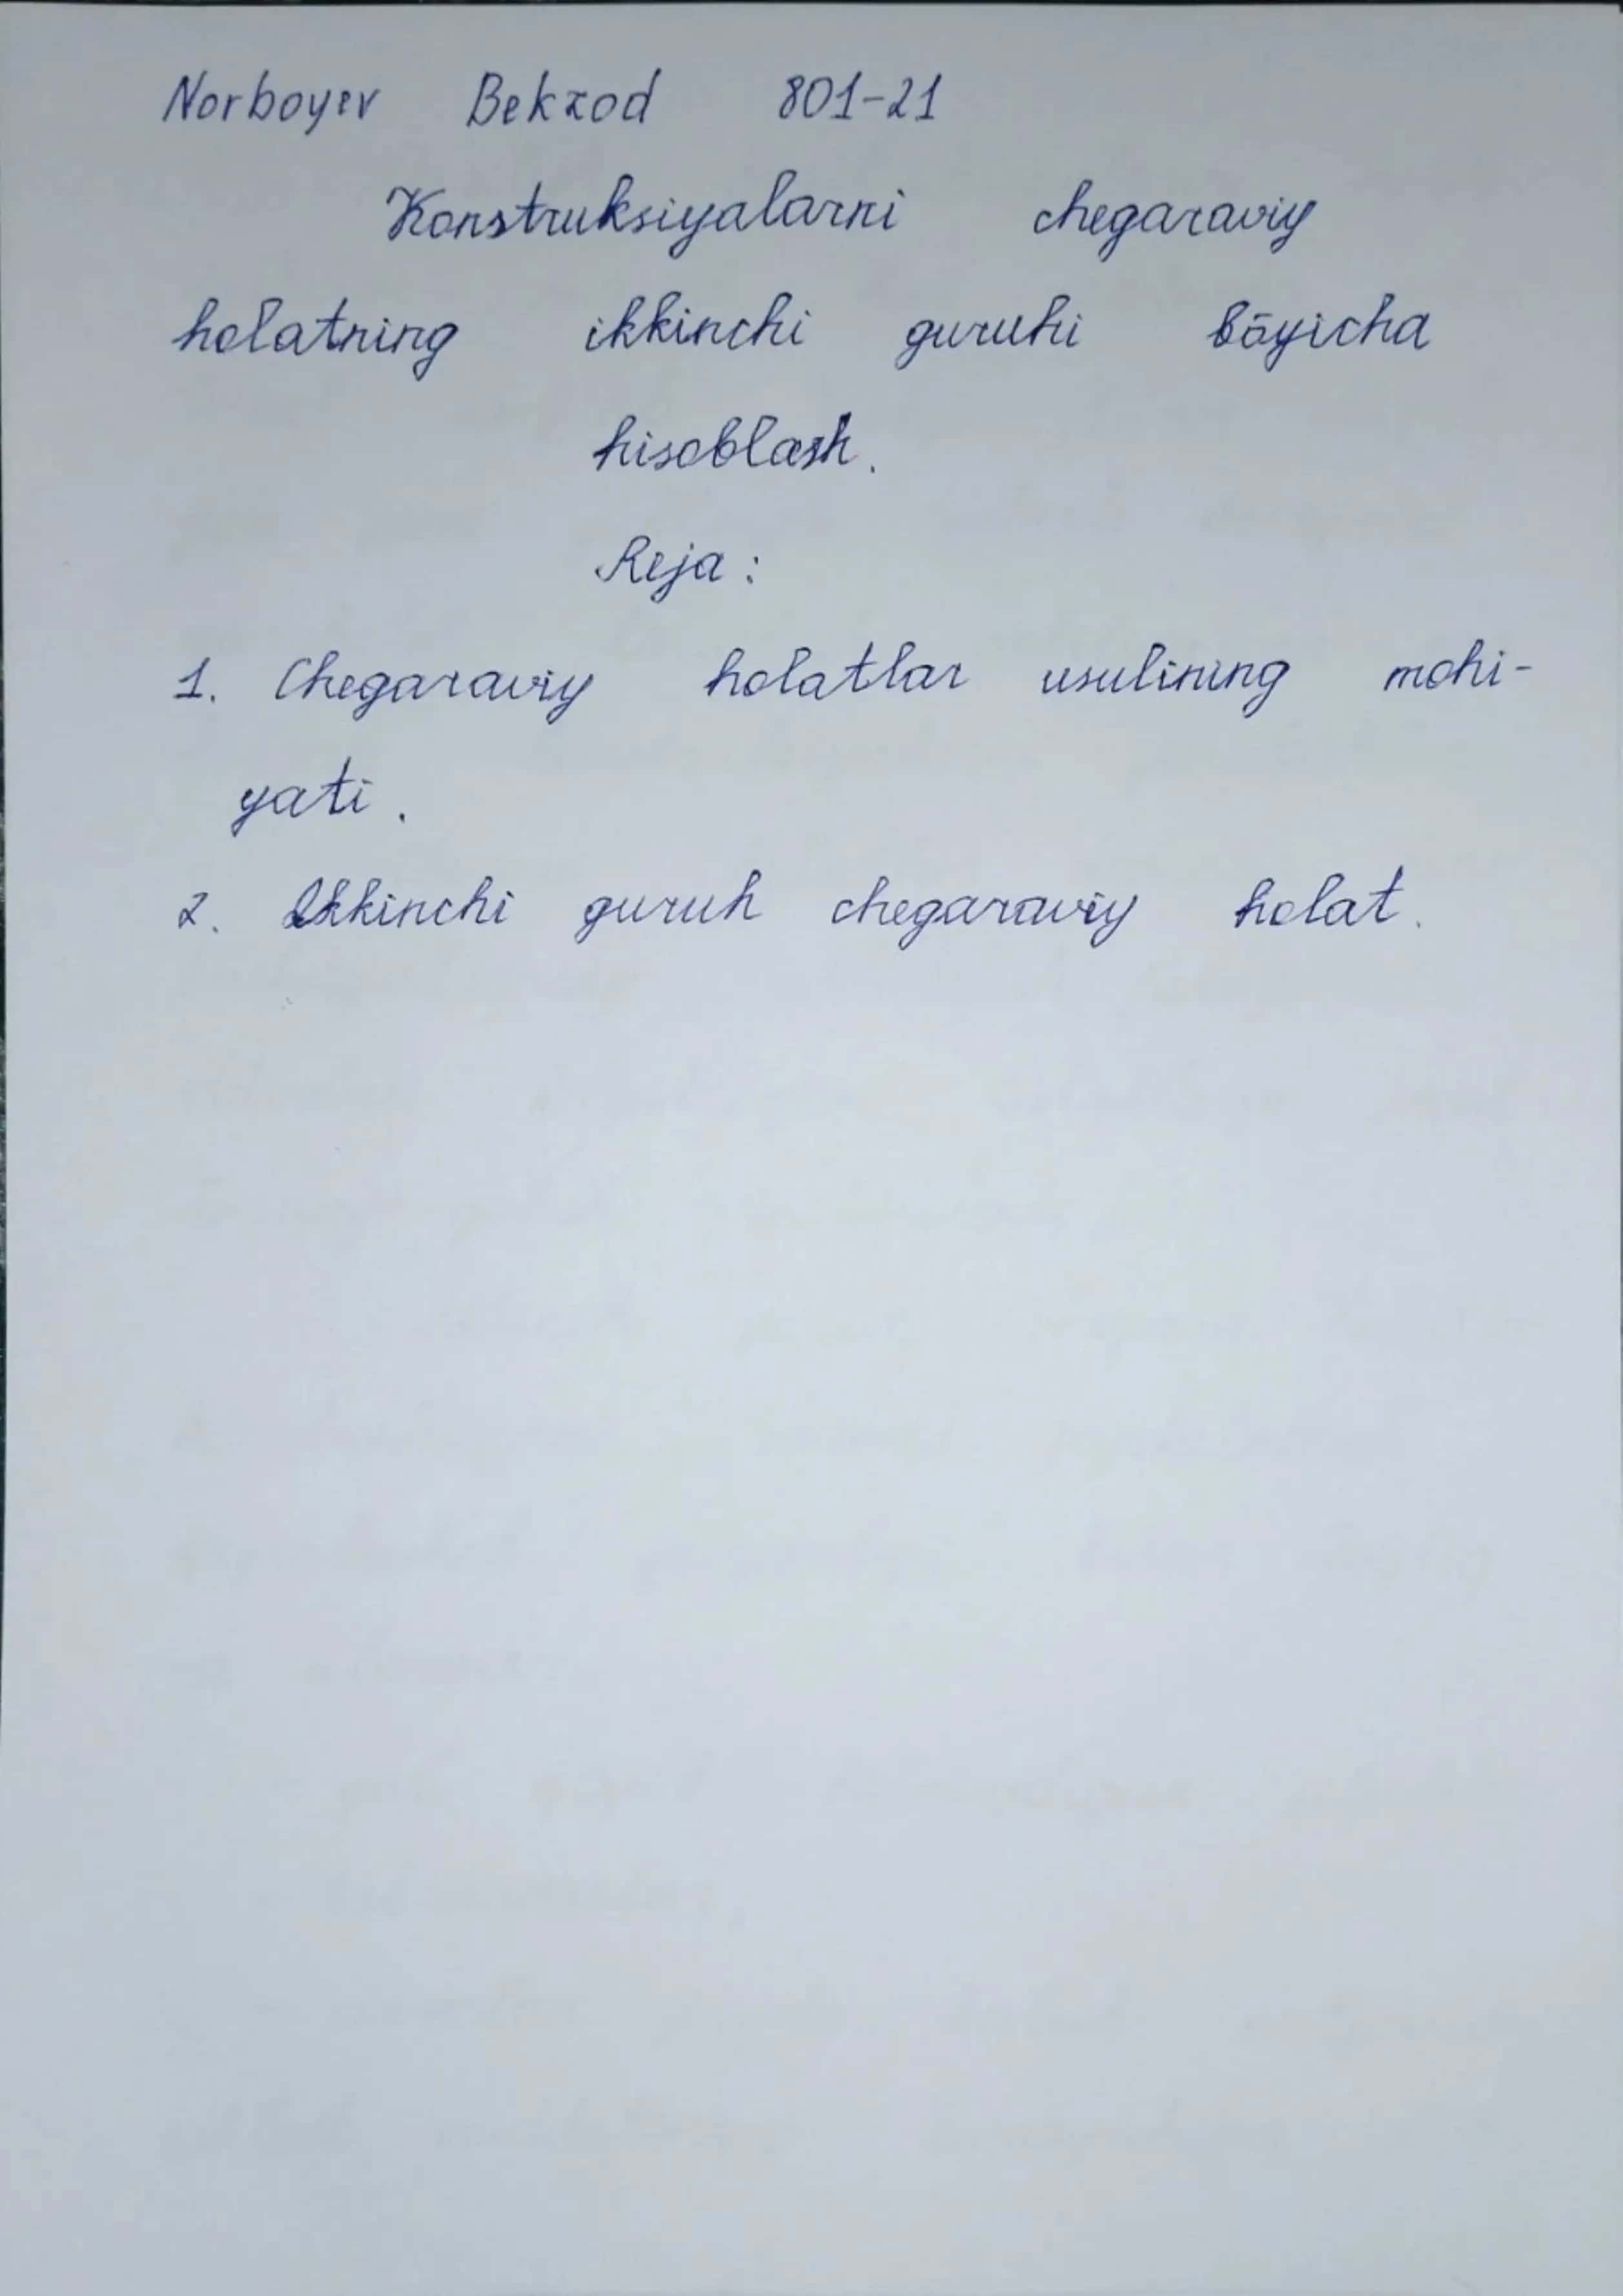 Norboyev Bekzod 801-21
Konstruksiyalarni chegaraviy
holatning ikkinchi guruhi bōyicha
hisoblash.
Reja:
1. Chegaraviy holatlar usulining mohi-
yati.
2. Ikkinchi guruh chegaraviy holat.